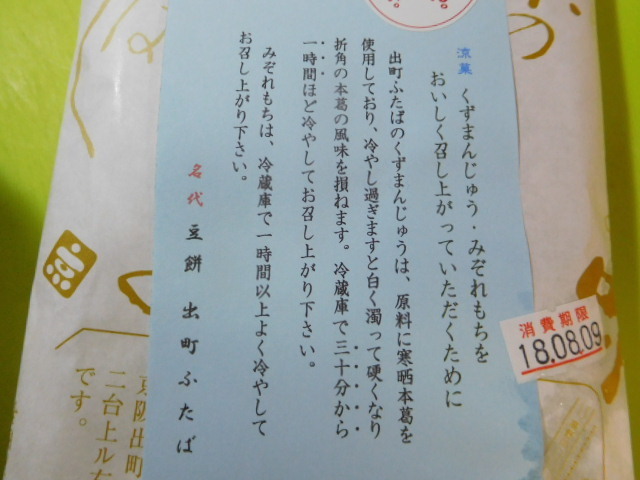 涼菓 くずまんじゅう・みぞれもちを
おいしく召し上がっていただくために
出町ふたばのくずまんじゅうは、原料に寒晒本葛を
使用しており、冷やし過ぎますと白く濁って硬くなり
折角の本葛の風味を損ねます。冷蔵庫で三十分から
一時間ほど冷やしてお召し上がり下さい。
みぞれもちは、冷蔵庫で一時間以上よく冷やして
お召し上がり下さい。
名代 豆餅 出町ふたば
消費期限
18.08.09
京阪出町
二台上ル
です。